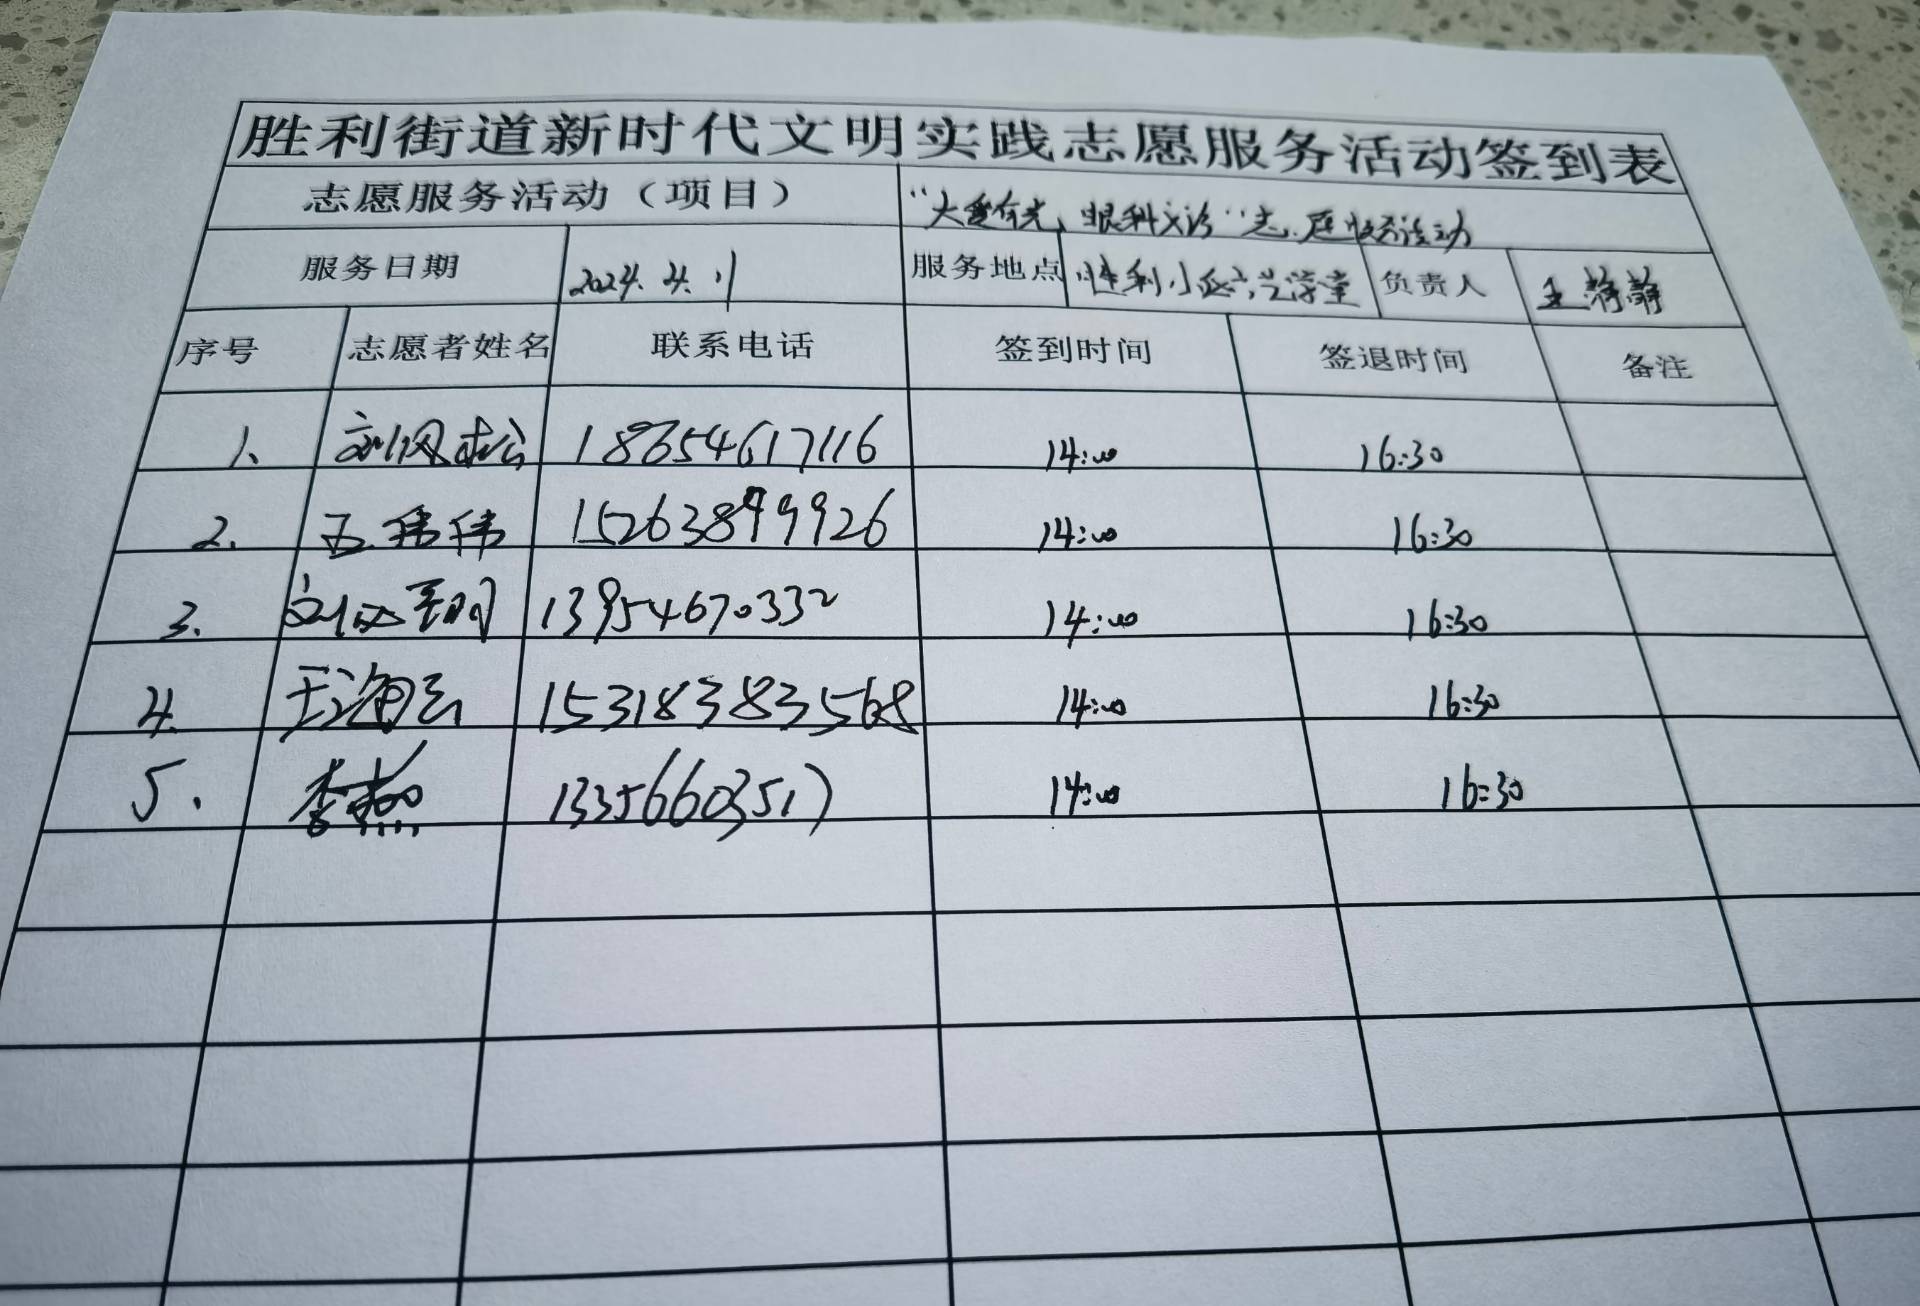 胜利街道新时代文明实践志愿服务活动签到表
志愿服务活动（项目） “大爱有光，眼科义诊”志愿服务活动
服务日期 2024.4.11 服务地点 胜利小区 学堂 负责人 王静静
序号 志愿者姓名 联系电话 签到时间 签退时间 备注
1、 刘凤松 18654617116 14:00 16:30
2. 王伟伟 15263899926 14:00 16:30
3. 13954670332 14:00 16:30
4. 王海云 15318383568 14:00 16:30
5. 李燕 13356603517 14:00 16:30